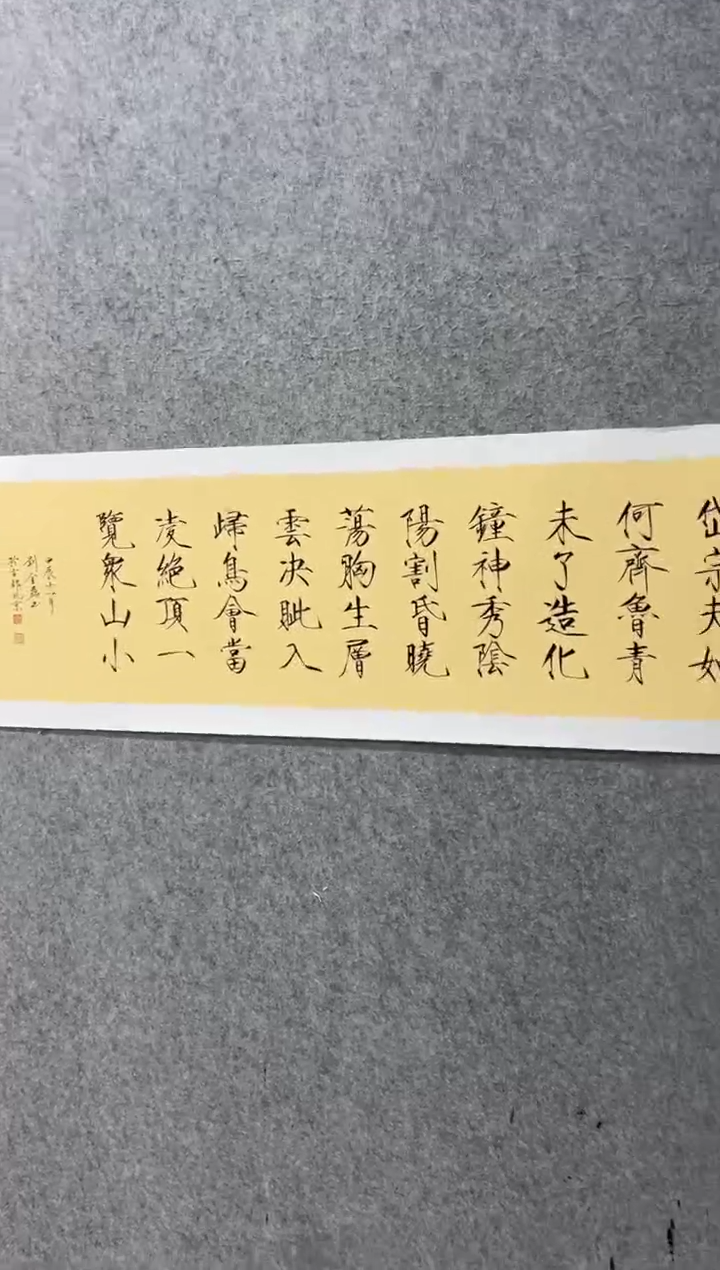 岱宗夫如
何齊魯青
未了造化
鐘神秀陰
陽割昏曉
蕩胸生層
雲决眦入
歸鳥會當
凌絕頂一
覽衆山小